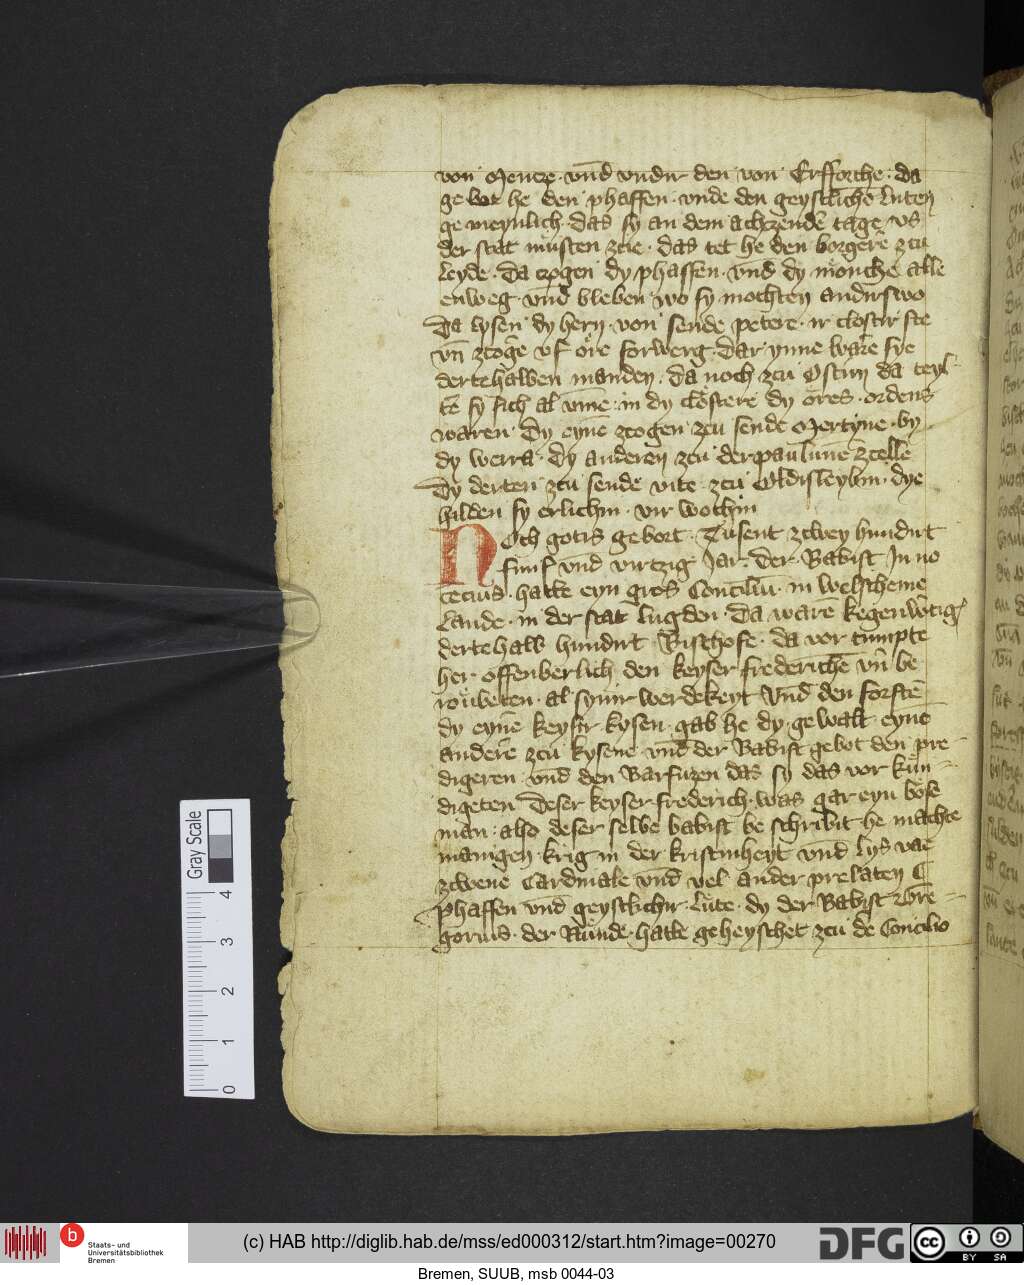 von Mentze · vnd vndir den von Erfforthe · da
ge bot he den phaffen · vnde den geystlichē luten
ge meynlich · das sy an dem achczendē tage vs
der stat musten zcie · das tet he den borgerē zcu
leyde · Da czogen dy phaffen · vnd dy monche alle
enweg · vnd bleben wo sy mochten andirswo
Da lysen dy hern · von sende petere · ir clostir ste
vn̄ zcogē vf ore forwerg · dar ynne warē sye
dertehalben manden · da noch zcu Ostirn da teyl-
tē sy sich al vmē · in dy clostere dy ores · ordens
waren · Dy eynē zcogen zcu sende Mertyne · by
dy werra · Dy anderen zcu der paulinne zcelle
Dy derten zcu sende vite · zcu Oldisleybin · dye
hilden sy erlichin · vir wochin
Noch gotis gebort · Tusent zcwey hundirt
funf vnd virtzig Jar · Der · Babist In no
cecius · hatte eyn gros Conciliū · in welscheme
lande · in der stat lugden · Da ware kegenwertig
dertehalb hundirt Bischofe · da vor tumpte
her offenberlich den keyser frederichē vn̄ be
roubeten · al synir werdekeyt Vnd den forstē
dy eynē keysir kysen · gab he dy gewalt eynē
anderē zcu kysene vnd der Babist gebot den pre-
digeren vnd den Barfuzen das sy das vor kun-
digeten Deser keyser frederich · was gar eyn bose
man · also deser selbe babist be schribit he machte
manigen · krig in der kristinheyt vnd lys vae
zcwene Cardinale vnd vel ander prelaten
phaffen vnd geystlichir lute · dy der Babist Gre-
gorius · der Nunde · hatte geheyschet zcu dē Concilio
Gray Scale
4
3
2
1
0
b
Staats- und
Universitätsbibliothek
Bremen
(c) HAB http://diglib.hab.de/mss/ed000312/start.htm?image=00270
DFG
cc
BY SA
Bremen, SUUB, msb 0044-03